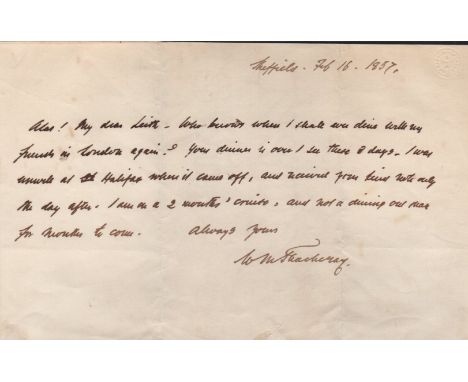 Sheffield. Feb 16. 1857.
Alas! My dear Leith - Who knows when I shall ever dine with my
friends in London again? Your dinner is over I see these 8 days. I was
unwell at Halifax when it came off, and received your kind note only
the day after. I am on a 2 months' cruise, and not a dining out man
for months to come. Always yours
W M Thackeray.